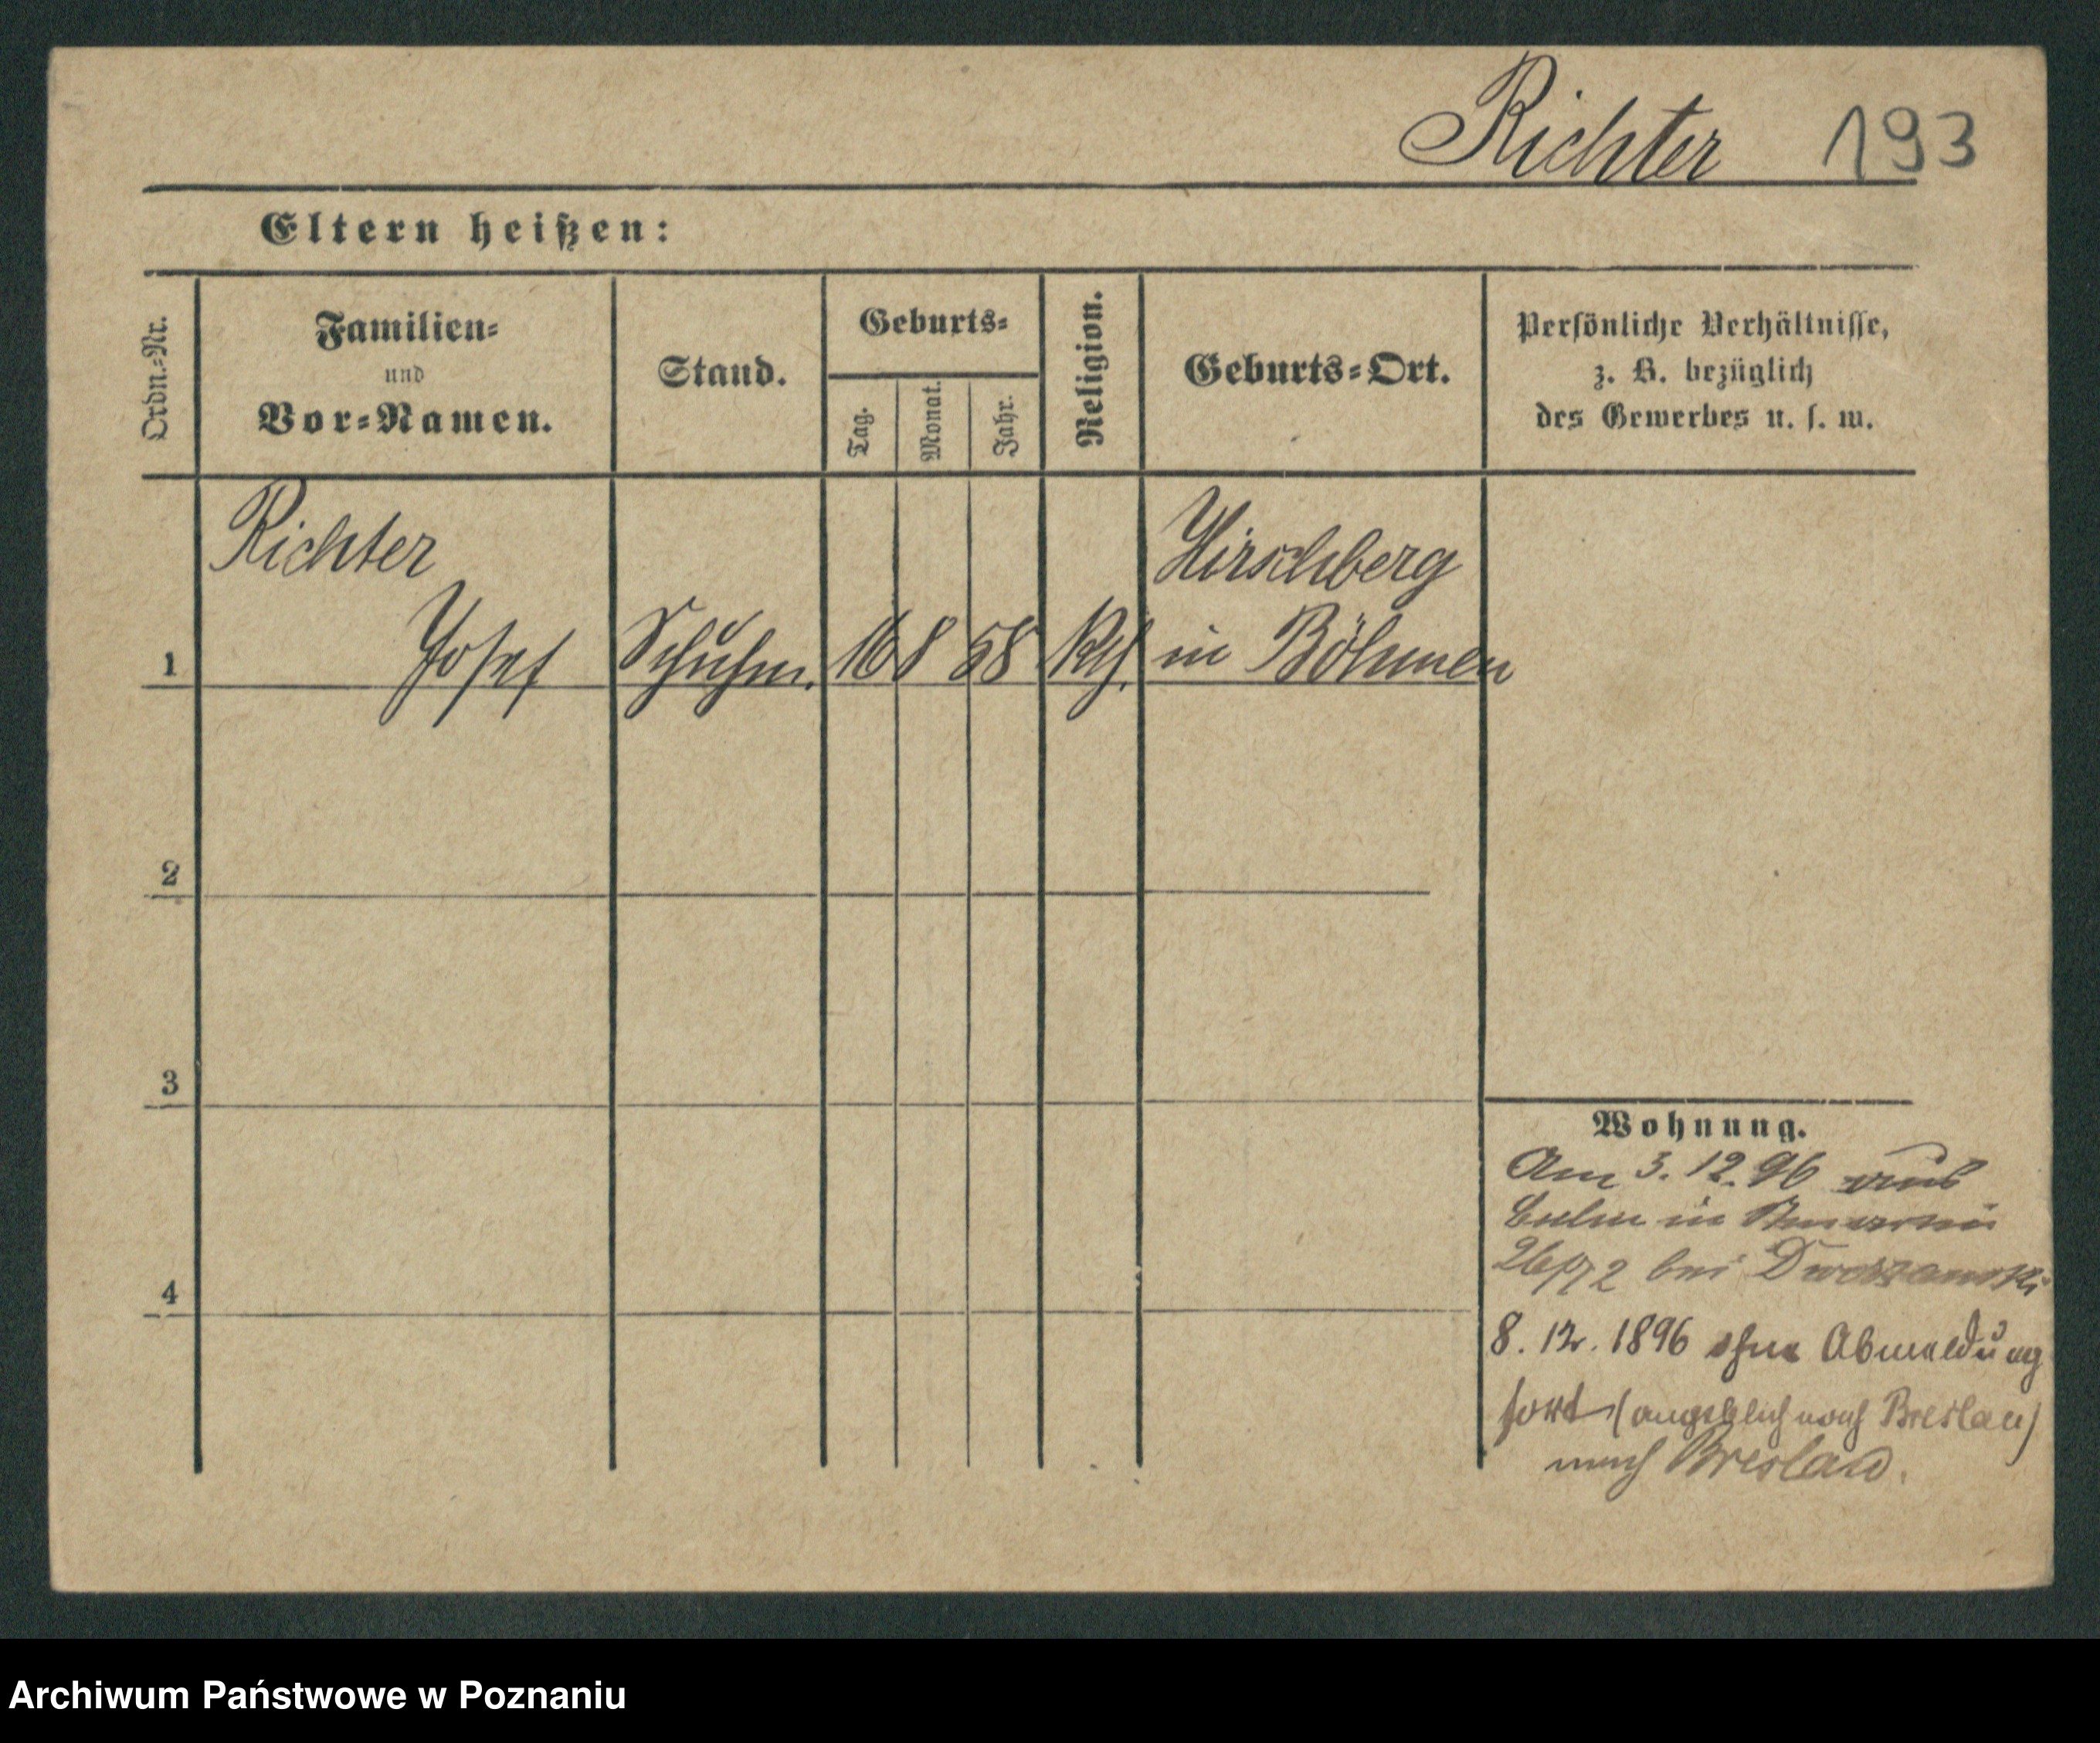 Richter 193
Eltern heißen:
Ordn.-Nr.
Familien-
und
Vor-Namen.
Stand.
Geburts-
Tag.
Monat.
Jahr.
Religion.
Geburts-Ort.
Persönliche Verhältnisse,
z. B. bezüglich
des Gewerbes u. s. w.
Richter
Hirschberg
1 Josef Schuhm. 16 8 58 kth. in Böhmen
2
3
4
Wohnung.
Am 3. 12. 96 aus
Culm in
bei
8. 12. 1896 ohne Abmeldung
fort (angeblich nach Breslau)
nach Breslau.
Archiwum Państwowe w Poznaniu